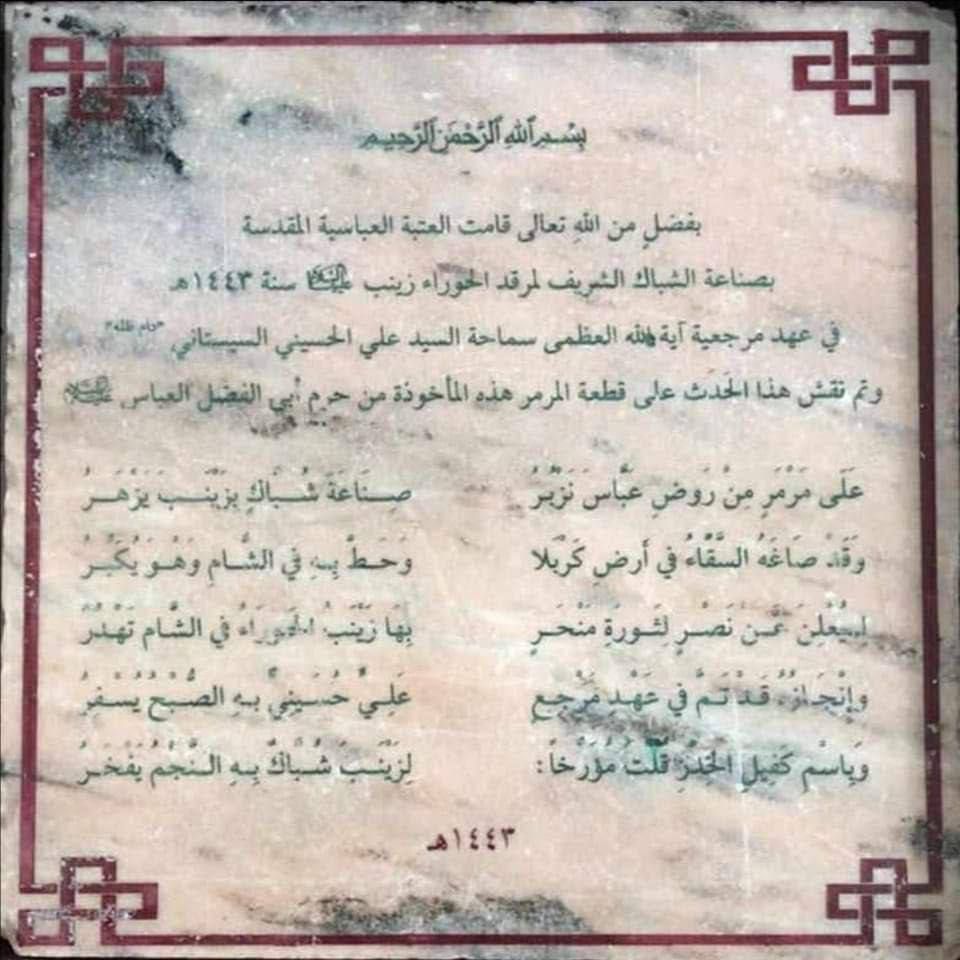 بِسْمِ ٱللَّهِ ٱلرَّحْمَنِ ٱلرَّحِيمِ
بفضلٍ من اللهِ تعالى قامت العتبة العباسية المقدسة
بصناعة الشباك الشريف لمرقد الحوراء زينب عليها السلام سنة ١٤٤٣هـ
في عهد مرجعية آية الله العظمى سماحة السيد علي الحسيني السيستاني "دام ظله"
وتم نقش هذا الحَدَث على قطعة المرمر هذه المأخوذة من حرم أبي الفضل العباس عليه السلام
عَلَى مَرْمَرٍ مِنْ رَوْضِ عَبَّاسَ نَزْبُرُ صِنَاعَةَ شُبَّاكٍ بِزَيْنَبَ يَزْهَرُ
وَقَدْ صَاغَهُ السَّقَّاءُ في أرضِ كَرْبَلا وَحَطَّ بِهِ في الشَّامِ وَهْوَ يُكَبِّرُ
لِيُعْلِنَ عَنْ نَصْرٍ لِثَورةِ مَنْحَرٍ بِهَا زَيْنَبُ الحَورَاءُ في الشَّام تَهْدُرُ
وإنْجَازُهُ قَدْ تَمَّ في عَهْدِ مَرْجِعٍ عَلِيٌّ حُسَينِيٌّ بِهِ الصُّبْحُ يُسْفِرُ
وَبِاسْمِ كَفِيلِ الخِدْرِ قُلْتُ مُؤَرِّخاً: لِزَيْنَبَ شُبَّاكٌ بِهِ النَّجْمُ يَفْخَرُ
١٤٤٣هـ